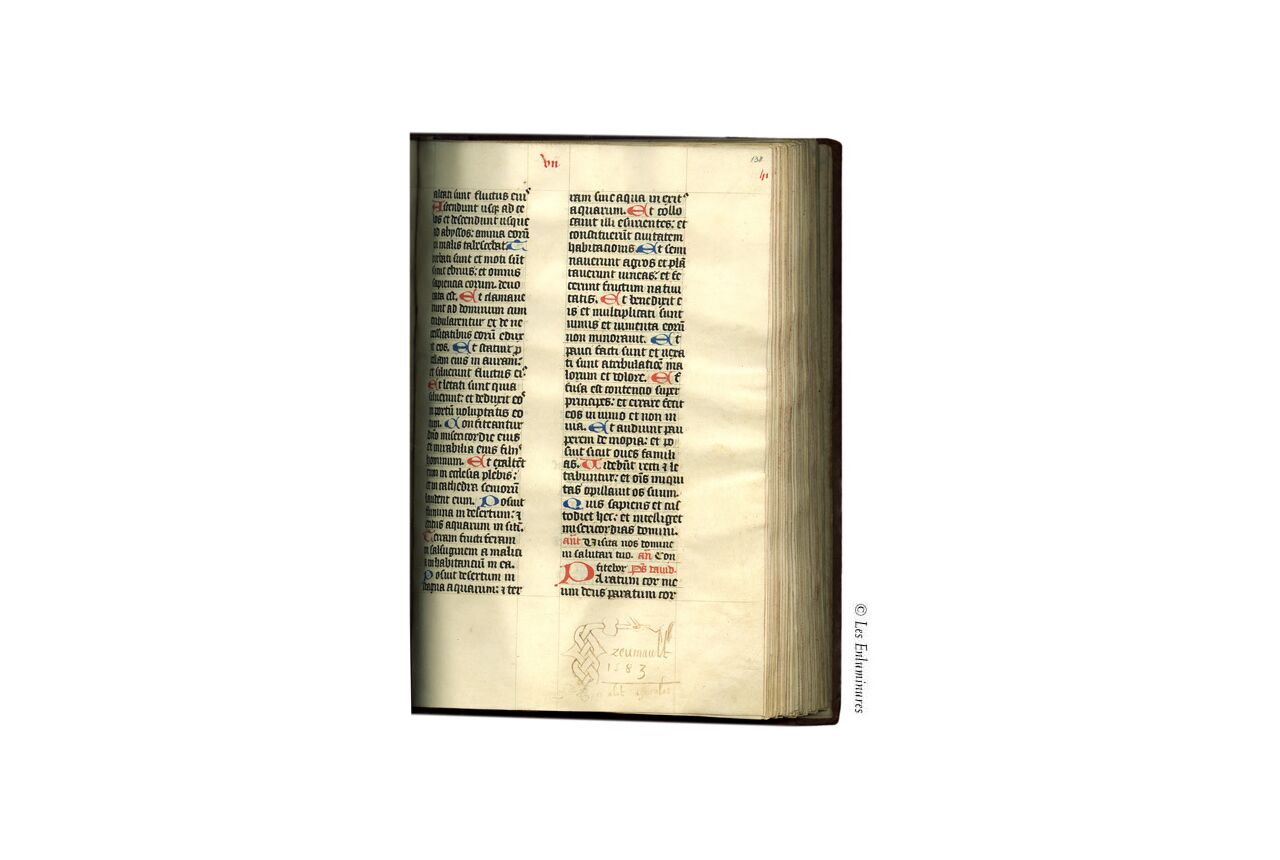 vii
138
altati sunt fluctus eiꝰ
Ascendunt usqꝫ ad ce
los et descendunt usque
ad abyssos: anima eorū
in malis tabescebat. T
urbati sunt et moti sūt
sicut ebrius: et omnis
sapiencia eorum. devo
rata est. Et clamave
runt ad dominum cum
tribularentur et de ne
cessitatibus eorū edux
it eos. Et statuit ꝓ
cellam eius in auram:
et siluerunt fluctus eiꝰ
Et letati sunt quia
siluerunt: et deduxit eoˢ
in portū voluptatis eo
rum. Confiteantur
dn̄o misericordie eius
et mirabilia eius filiiˢ
hominum. Et exaltēt
eum in ecclesia plebis:
et in cathedra seniorū
laudent eum. Posuit
flumina in desertum: ⁊
exitus aquarum in sitī.
Terram fructiferam
in salsuginem a malici
a inhabitanciū in ea.
Posuit desertum in
stagna aquarum: ⁊ ter
ram sine aqua in exitꝰ
aquarum. Et collo
cavit illi esurientes: et
constituerūt civitatem
habitationis. Et semi
naverunt agros et plā
taverunt vineas: et fe
cerunt fructum nativi
tatis. Et benedixit e
is et multiplicati sunt
nimis et iumenta eorū
non minoravit. Et
pauci facti sunt et vexa
ti sunt a tribulatiōe ma
lorum et dolore. Ef
fusa est contencio super
principes: et errare fecit
eos in invio et non in
via. Et audiunt pau
perem de inopia: et po
suit sicut oves famili
as. Videbūt recti ⁊ le
tabuntur: et oīs iniqui
tas opillavit os suum.
Quis sapiens et cus
todiet hec: et intelliget
misericordias domini.
añt Visita nos domine
in salutari tuo. añ Con
fitebor p̄s david.
Paratum cor me
um deus paratum cor
zeumault
1583
© Les Enluminures